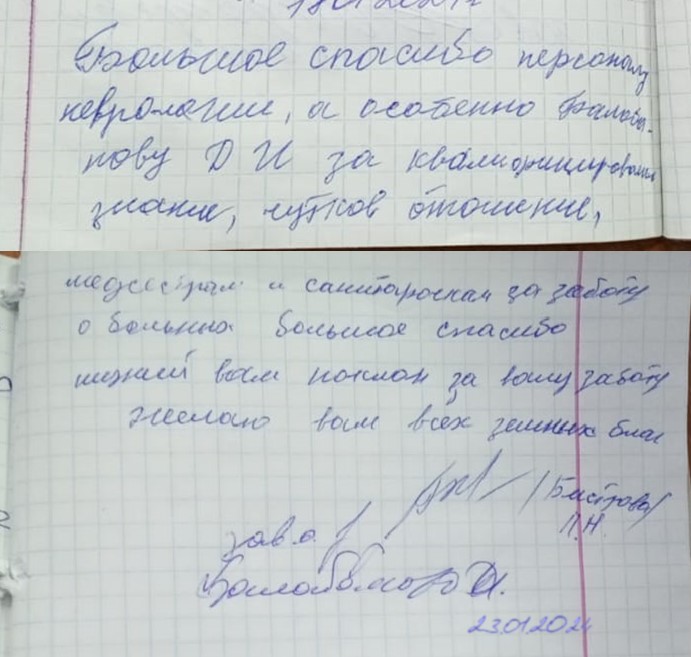 Большое спасибо персоналу
неврологии, а особенно
нову Д И за квалифицирован
знание, чуткое отношение,
медсестрам и санитарочкам за заботу
о больных большое спасибо
низкий вам поклон за вашу заботу
Желаю вам всех земных благ
/Быстрова/
Л.Н.
зав.о.
23.01.2024